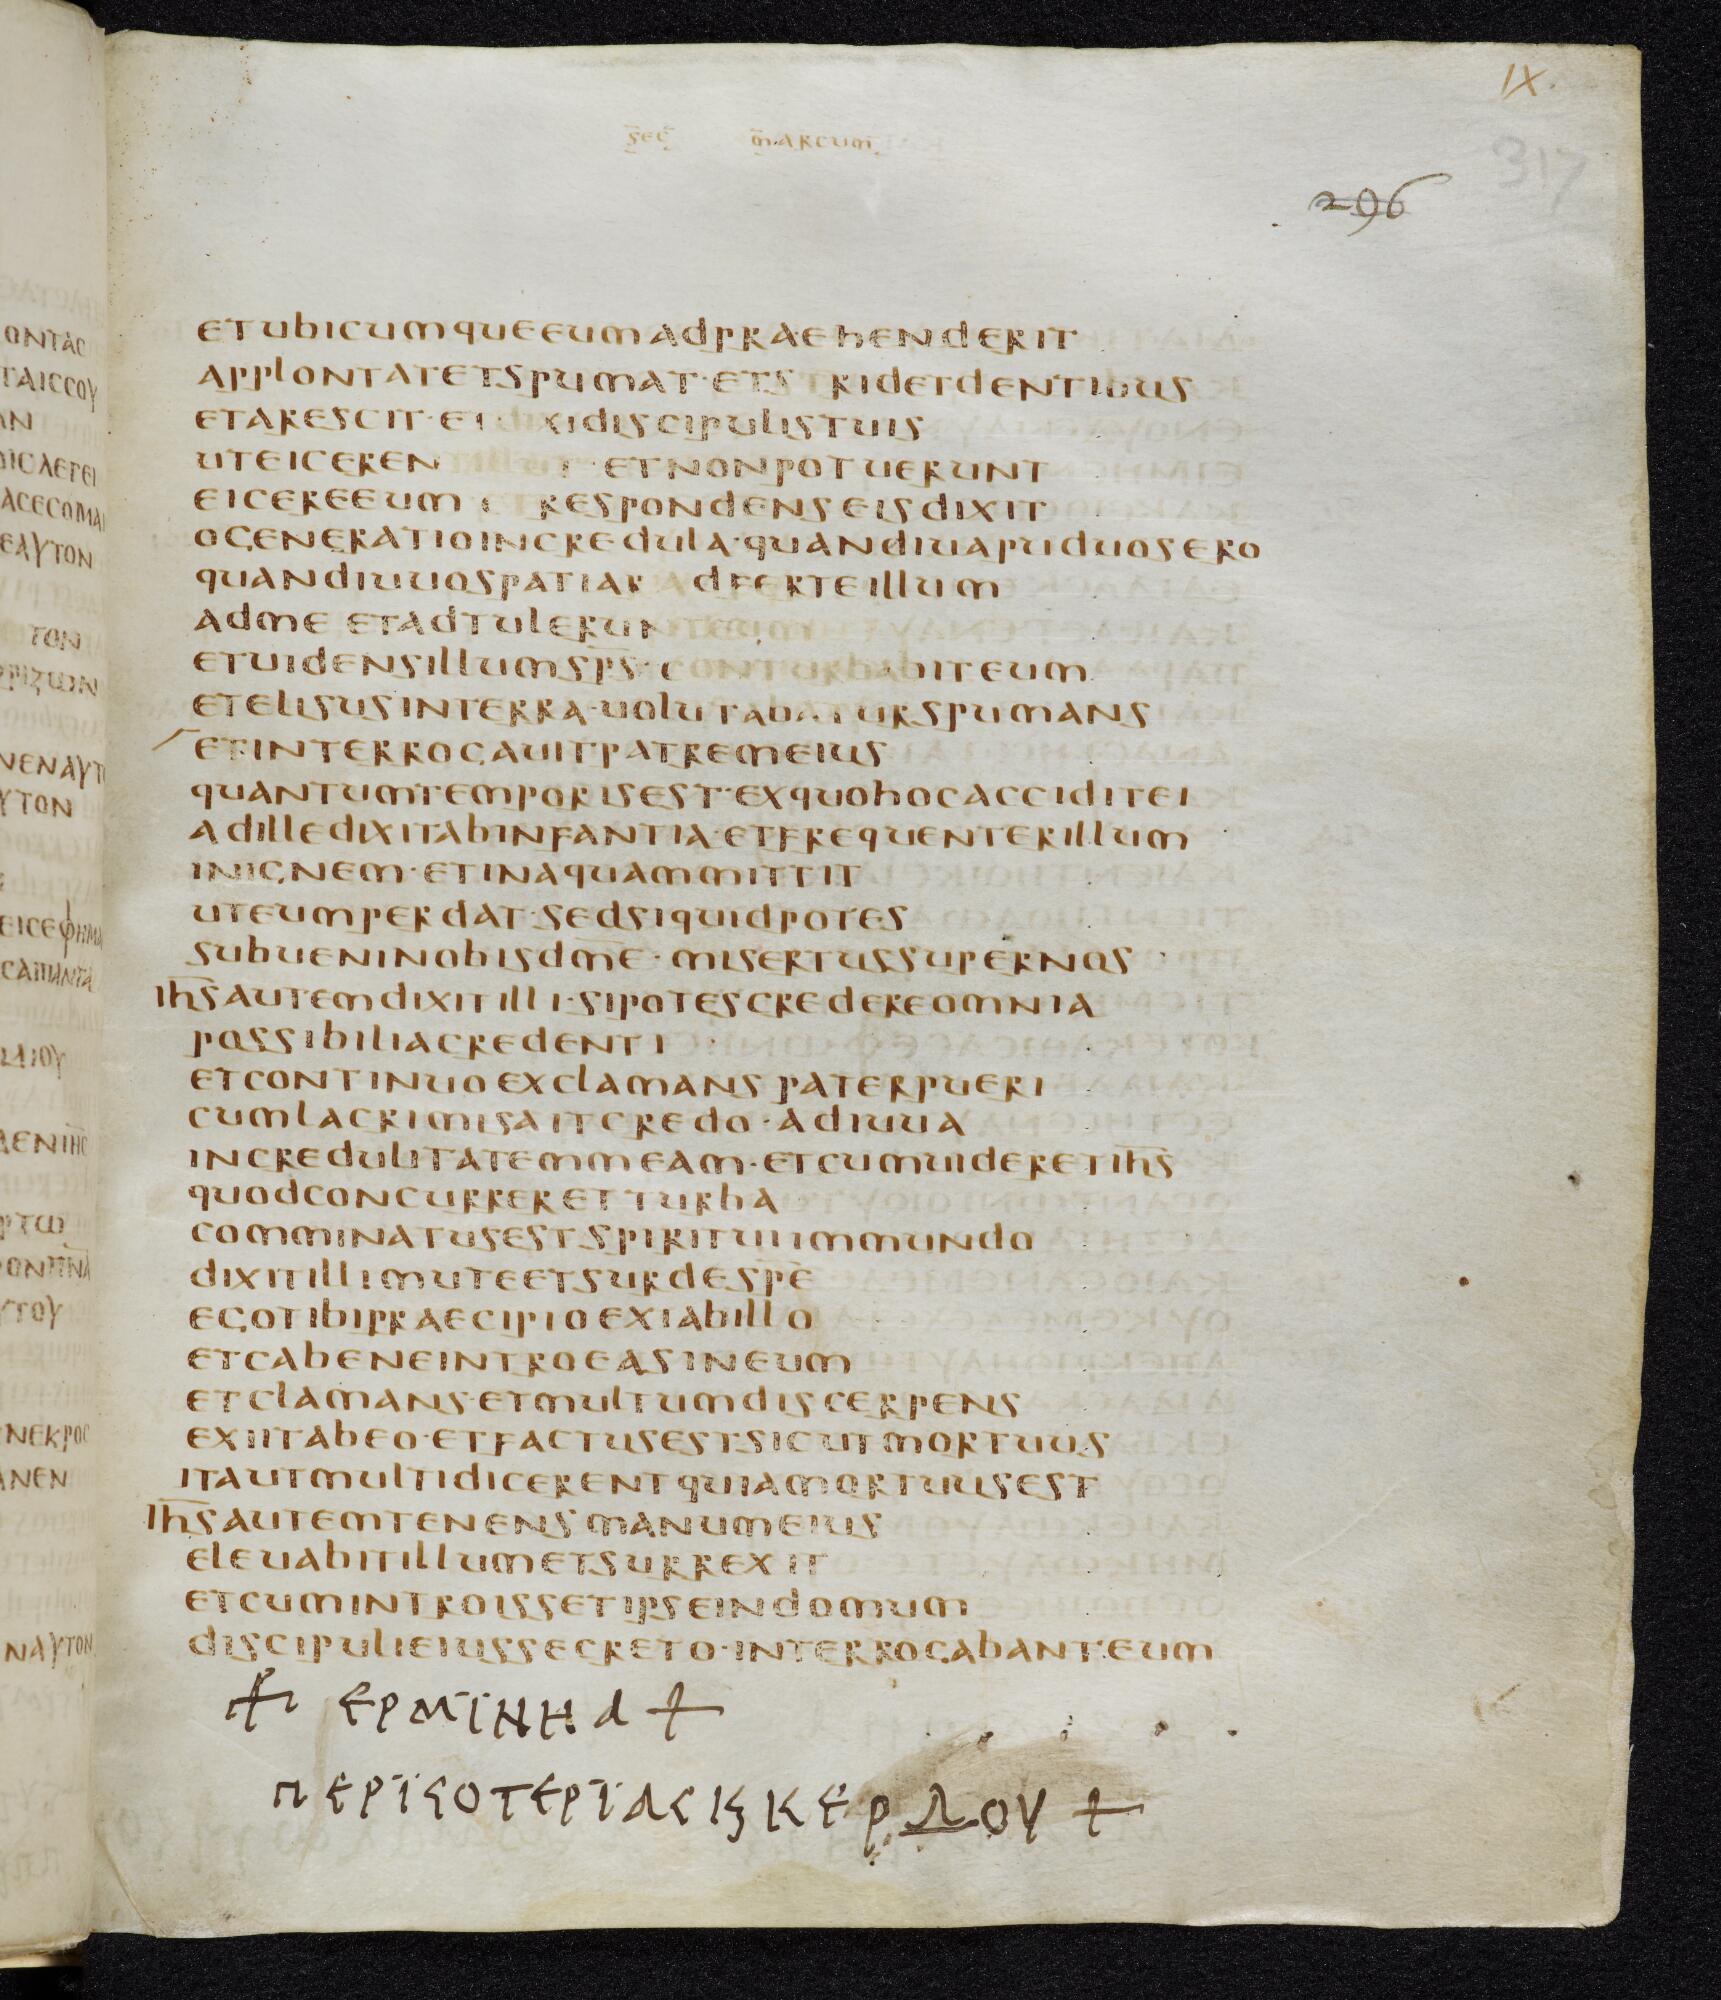 IX.
sec marcum
317
296
etubicumqueeumadpraehenderit
applontatetspumat·etstridetdentibus
etarescit·et dixidiscipulistuis
uteiceren etnonpotuerunt
eicereeum et respondenseisdixit
ogeneratioincredula·quandiuapuduosero
quandiuuospatiar adferteillum
adme etadtulerunteum
etuidensillumsps·conturbabiteum
etelisusinterra·uolutabaturspumans
etinterrogauitpatremeius
quantumtemporisest·exquohocacciditei
adilledixitabinfantia·etfrequenterillum
inignem·etinaquammittit
uteumperdat·sedsiquidpotes
subueninobisdme·misertussupernos
ihsautemdixitilli·sipotescredereomnia
possibiliacredenti
etcontinuoexclamanspaterpueri
cumlacrimisaitcredo·adiuua
incredulitatemmeam·etcumuideretihs
quodconcurreretturba
comminatusestspirituiimmundo
dixitillimuteetsurdespe
egotibipraecipioexiabillo
etcabeneintroeasineum
etclamans·etmultumdiscerpens
exiitabeo·etfactusestsicutmortuus
itautmultidicerentquiamortuusest
ihsautemtenensmanumeius
eleuabitillumetsurrexit
etcumintroissetipseindomum
discipulieiussecreto·interrogabanteum
ερμϊνηα
περϊσοτερϊας κς κερδου